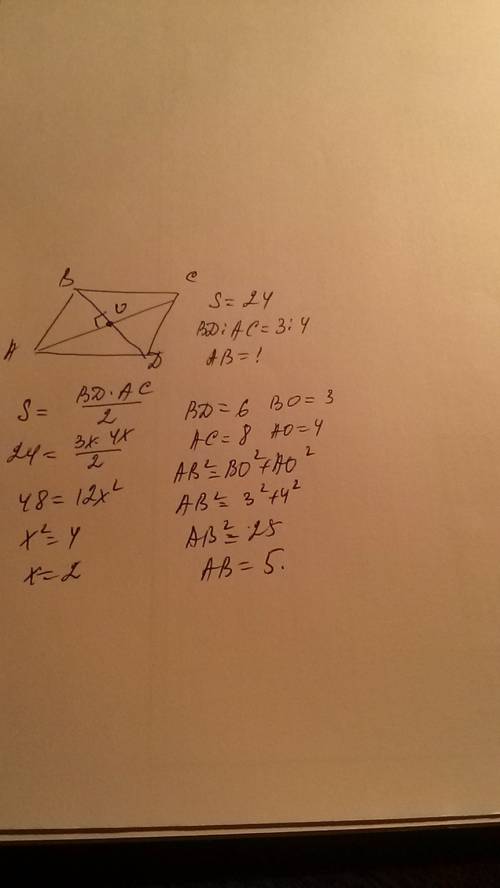 B C
O
A D
S = 24
BD : AC = 3 : 4
AB = !
S = BD · AC / 2
24 = 3x · 4x / 2
48 = 12x²
x² = 4
x = 2
BD = 6 BO = 3
AC = 8 AO = 4
AB² = BO² + AO²
AB² = 3² + 4²
AB² = 25
AB = 5.